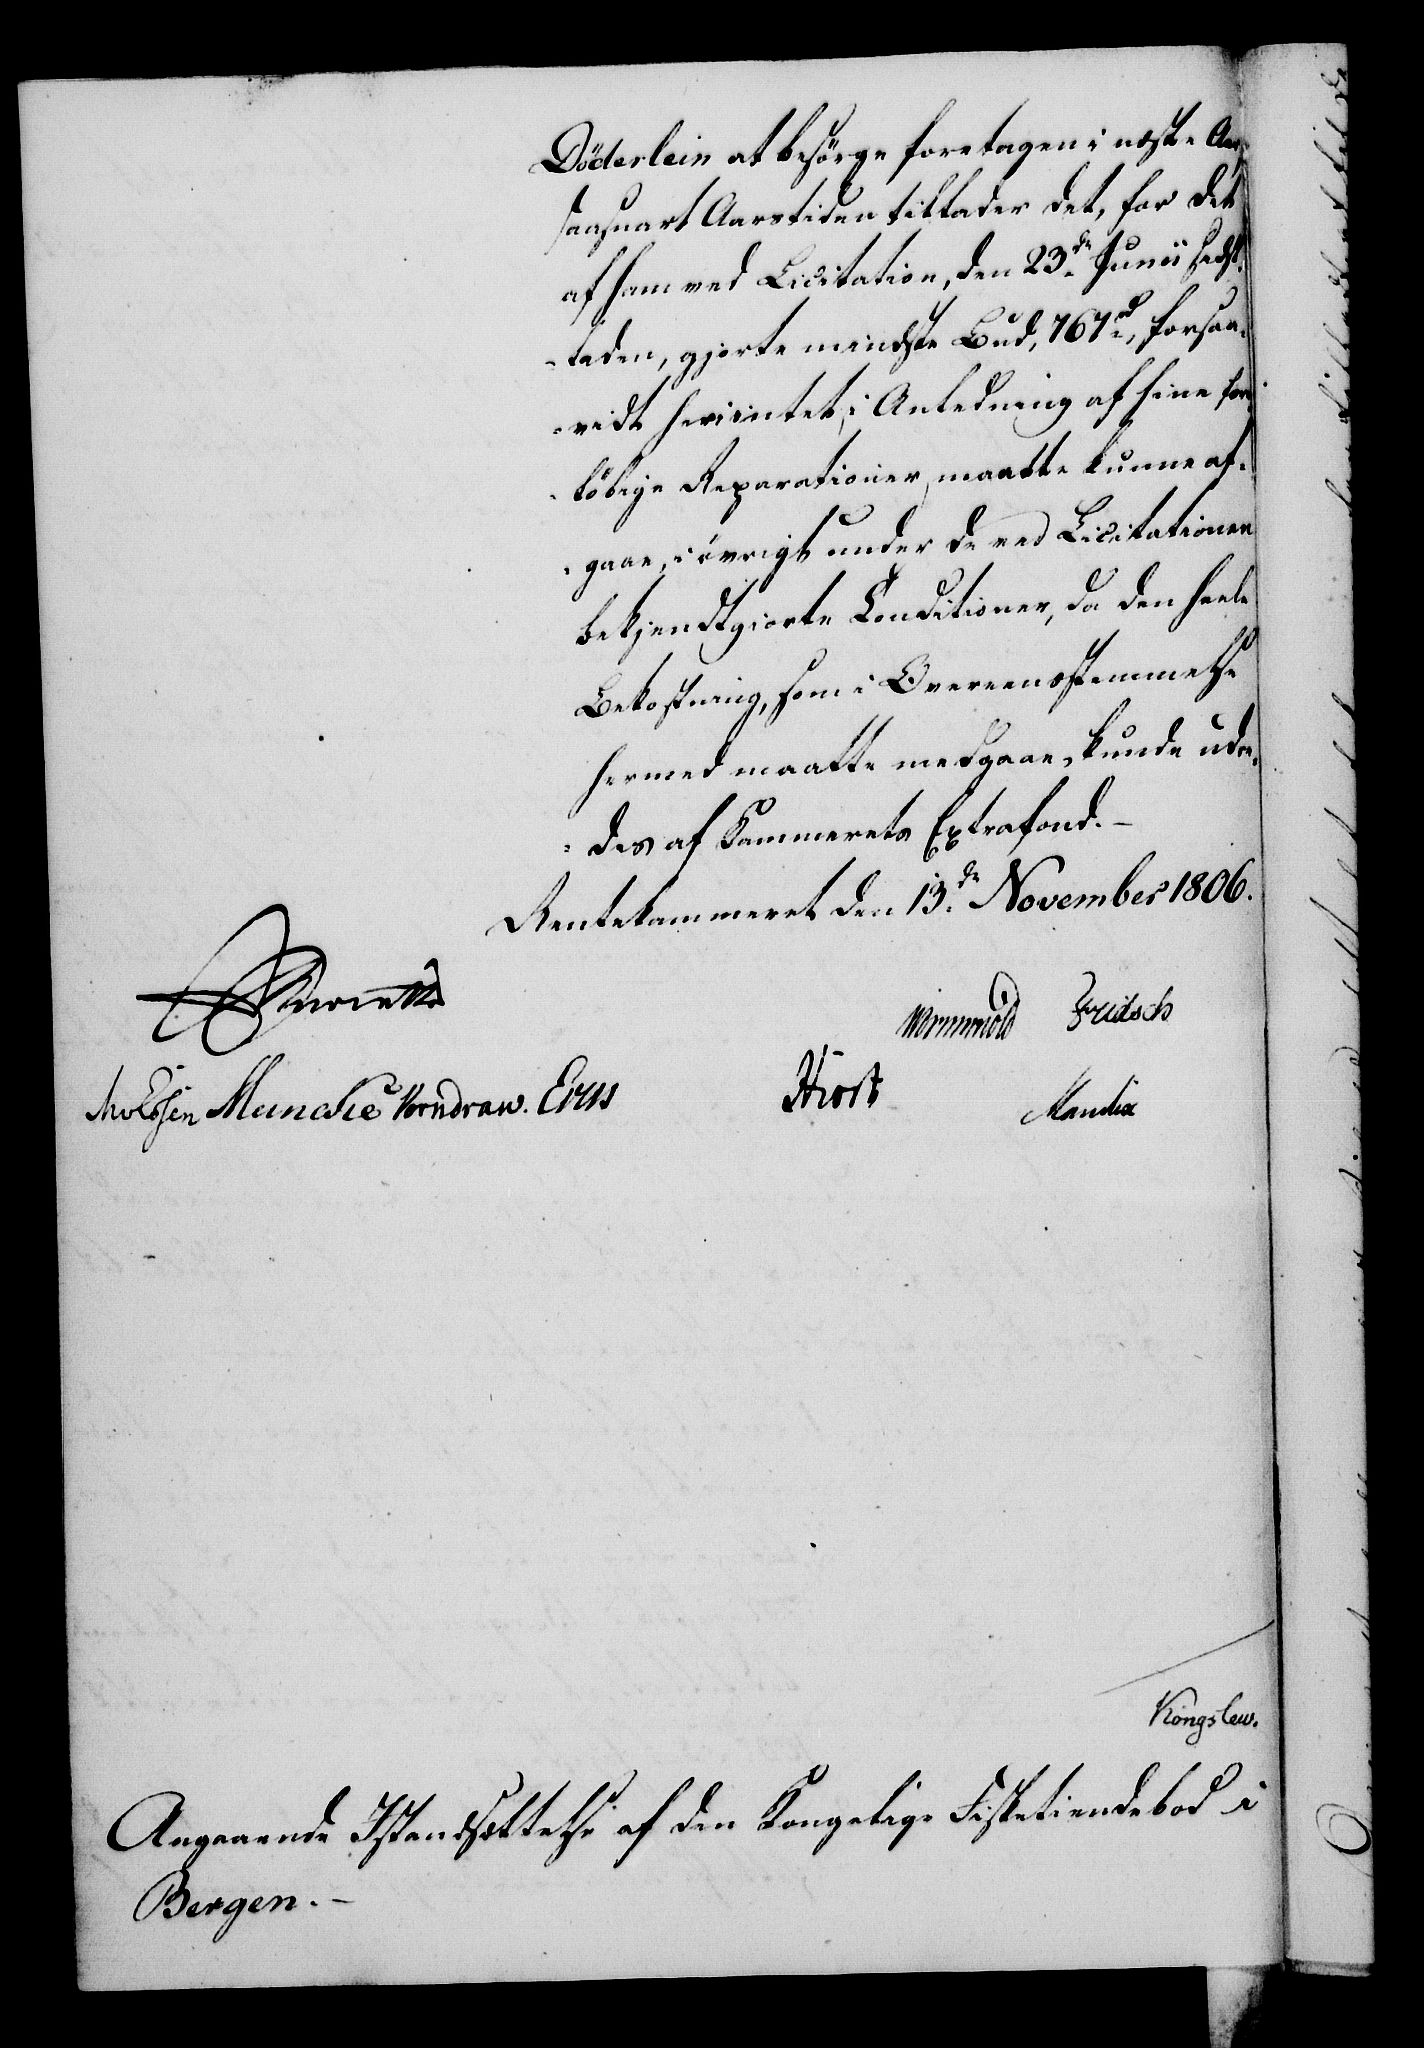 Döderlein at besörge foretagen i næste Aar,
saasnart Aarstiden tillader det, for det
af ham ved Licitation, den 23de Junii sidst-
-leden, gjorte mindste Bud, 767rd, forsaa-
-vidt heri intet, i Anledning af hine for-
-löbige Reparationer, maatte kunne af-
-gaae, i övrigt under de ved Licitationen
bekjendtgiorte Conditioner, da den heele
Bekostning, som i Overeensstemmelse
hermed maatte medgaae, kunde udre-
-des af Kammerets Extrafond.-
Rentekammeret den 13de November 1806.
Wormskiold Fridsch
Knoldsen Muncke Vorndran. Erus Hiort Mandix
Kongslew.
Angaaende Istandsættelse af den Kongelige Fisketiendebod i
Bergen.-